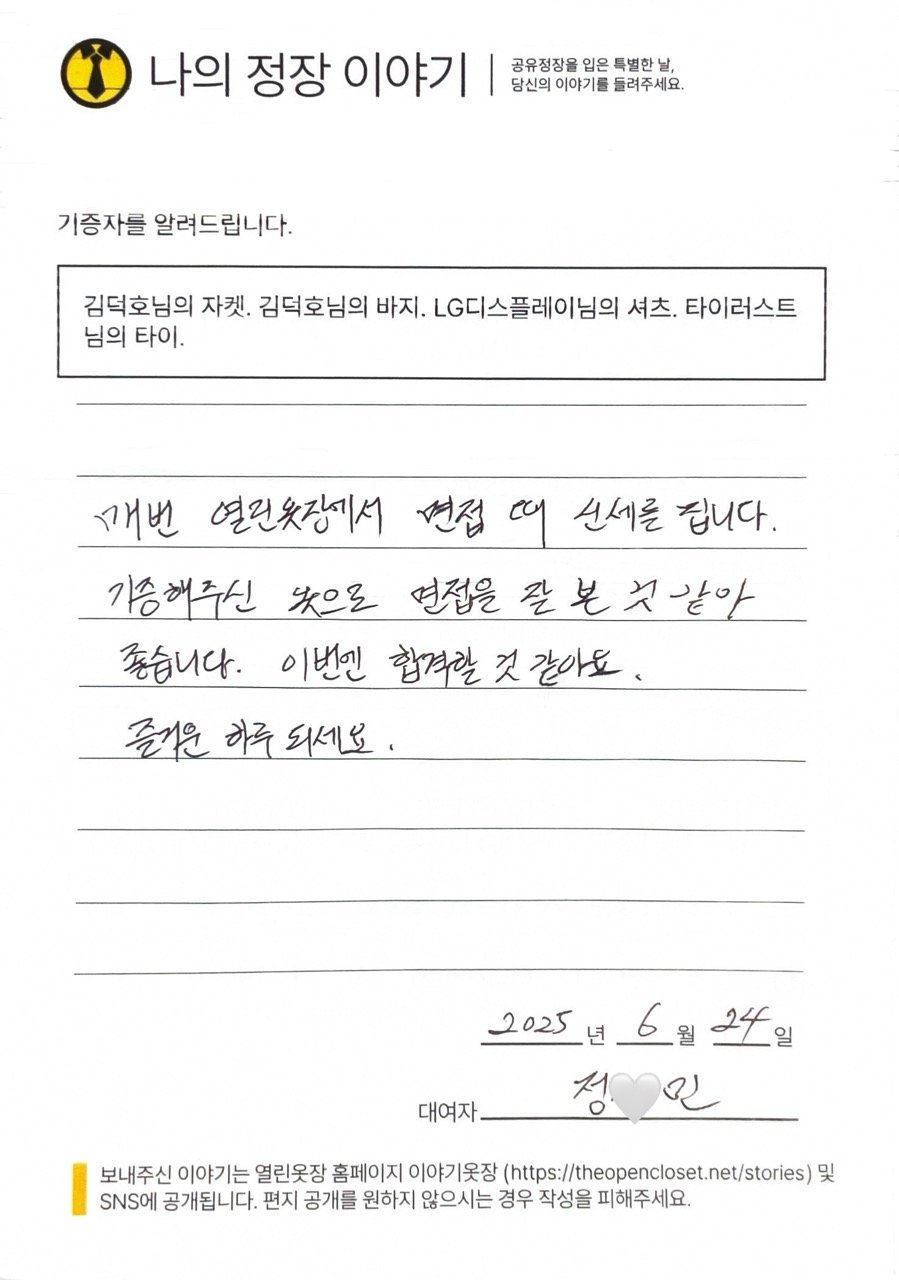 나의 정장 이야기
공유정장을 입은 특별한 날,
당신의 이야기를 들려주세요.
기증자를 알려드립니다.
김덕호님의 자켓. 김덕호님의 바지. LG디스플레이님의 셔츠. 타이러스트
님의 타이.
매번 열린옷장에서 면접 때 신세를 집니다.
기증해주신 옷으로 면접을 잘 본 것 같아
좋습니다. 이번엔 합격할 것 같아요.
즐거운 하루 되세요.
2025년 6월 24일
대여자 정 민
보내주신 이야기는 열린옷장 홈페이지 이야기옷장 (https://theopencloset.net/stories) 및
SNS에 공개됩니다. 편지 공개를 원하지 않으시는 경우 작성을 피해주세요.